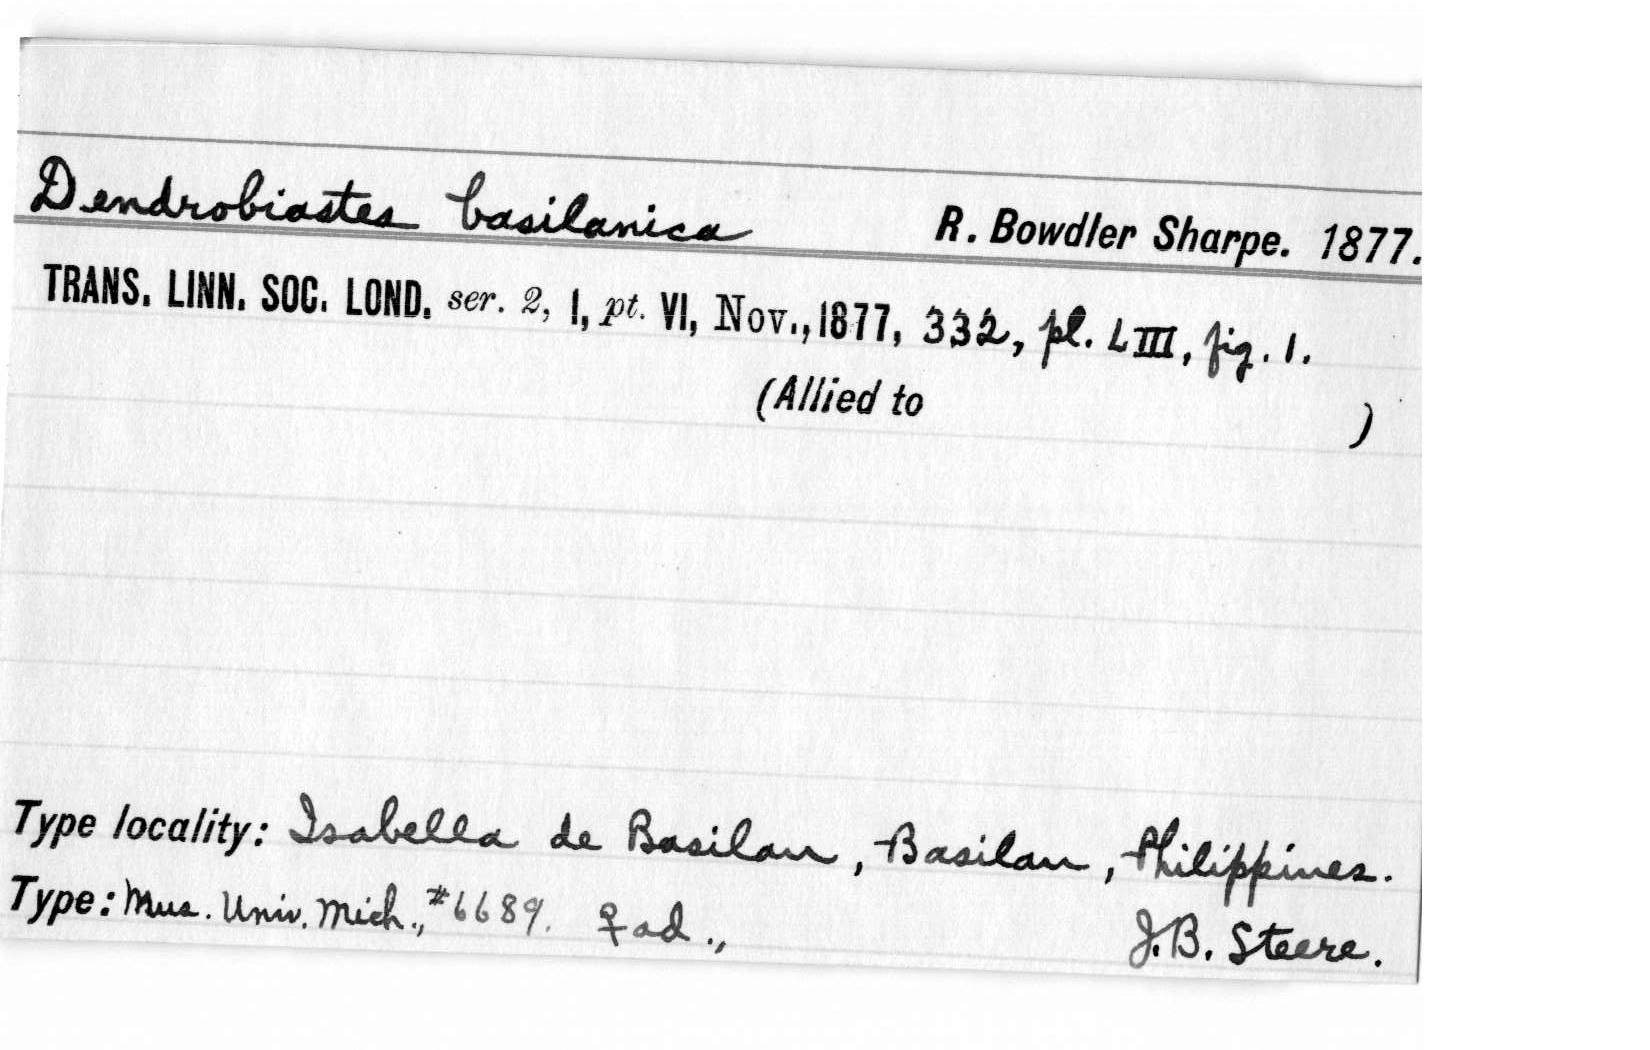 Dendrobiastes basilanica R. Bowdler Sharpe. 1877.
TRANS. LINN. SOC. LOND. ser. 2, I, pt. VI, Nov., 1877, 332, pl. LIII, fig. 1.
(Allied to )
Type locality: Isabella de Basilan, Basilan, Philippines.
Type: Mus. Univ. Mich., #6689. ♀ ad., J.B. Steere.